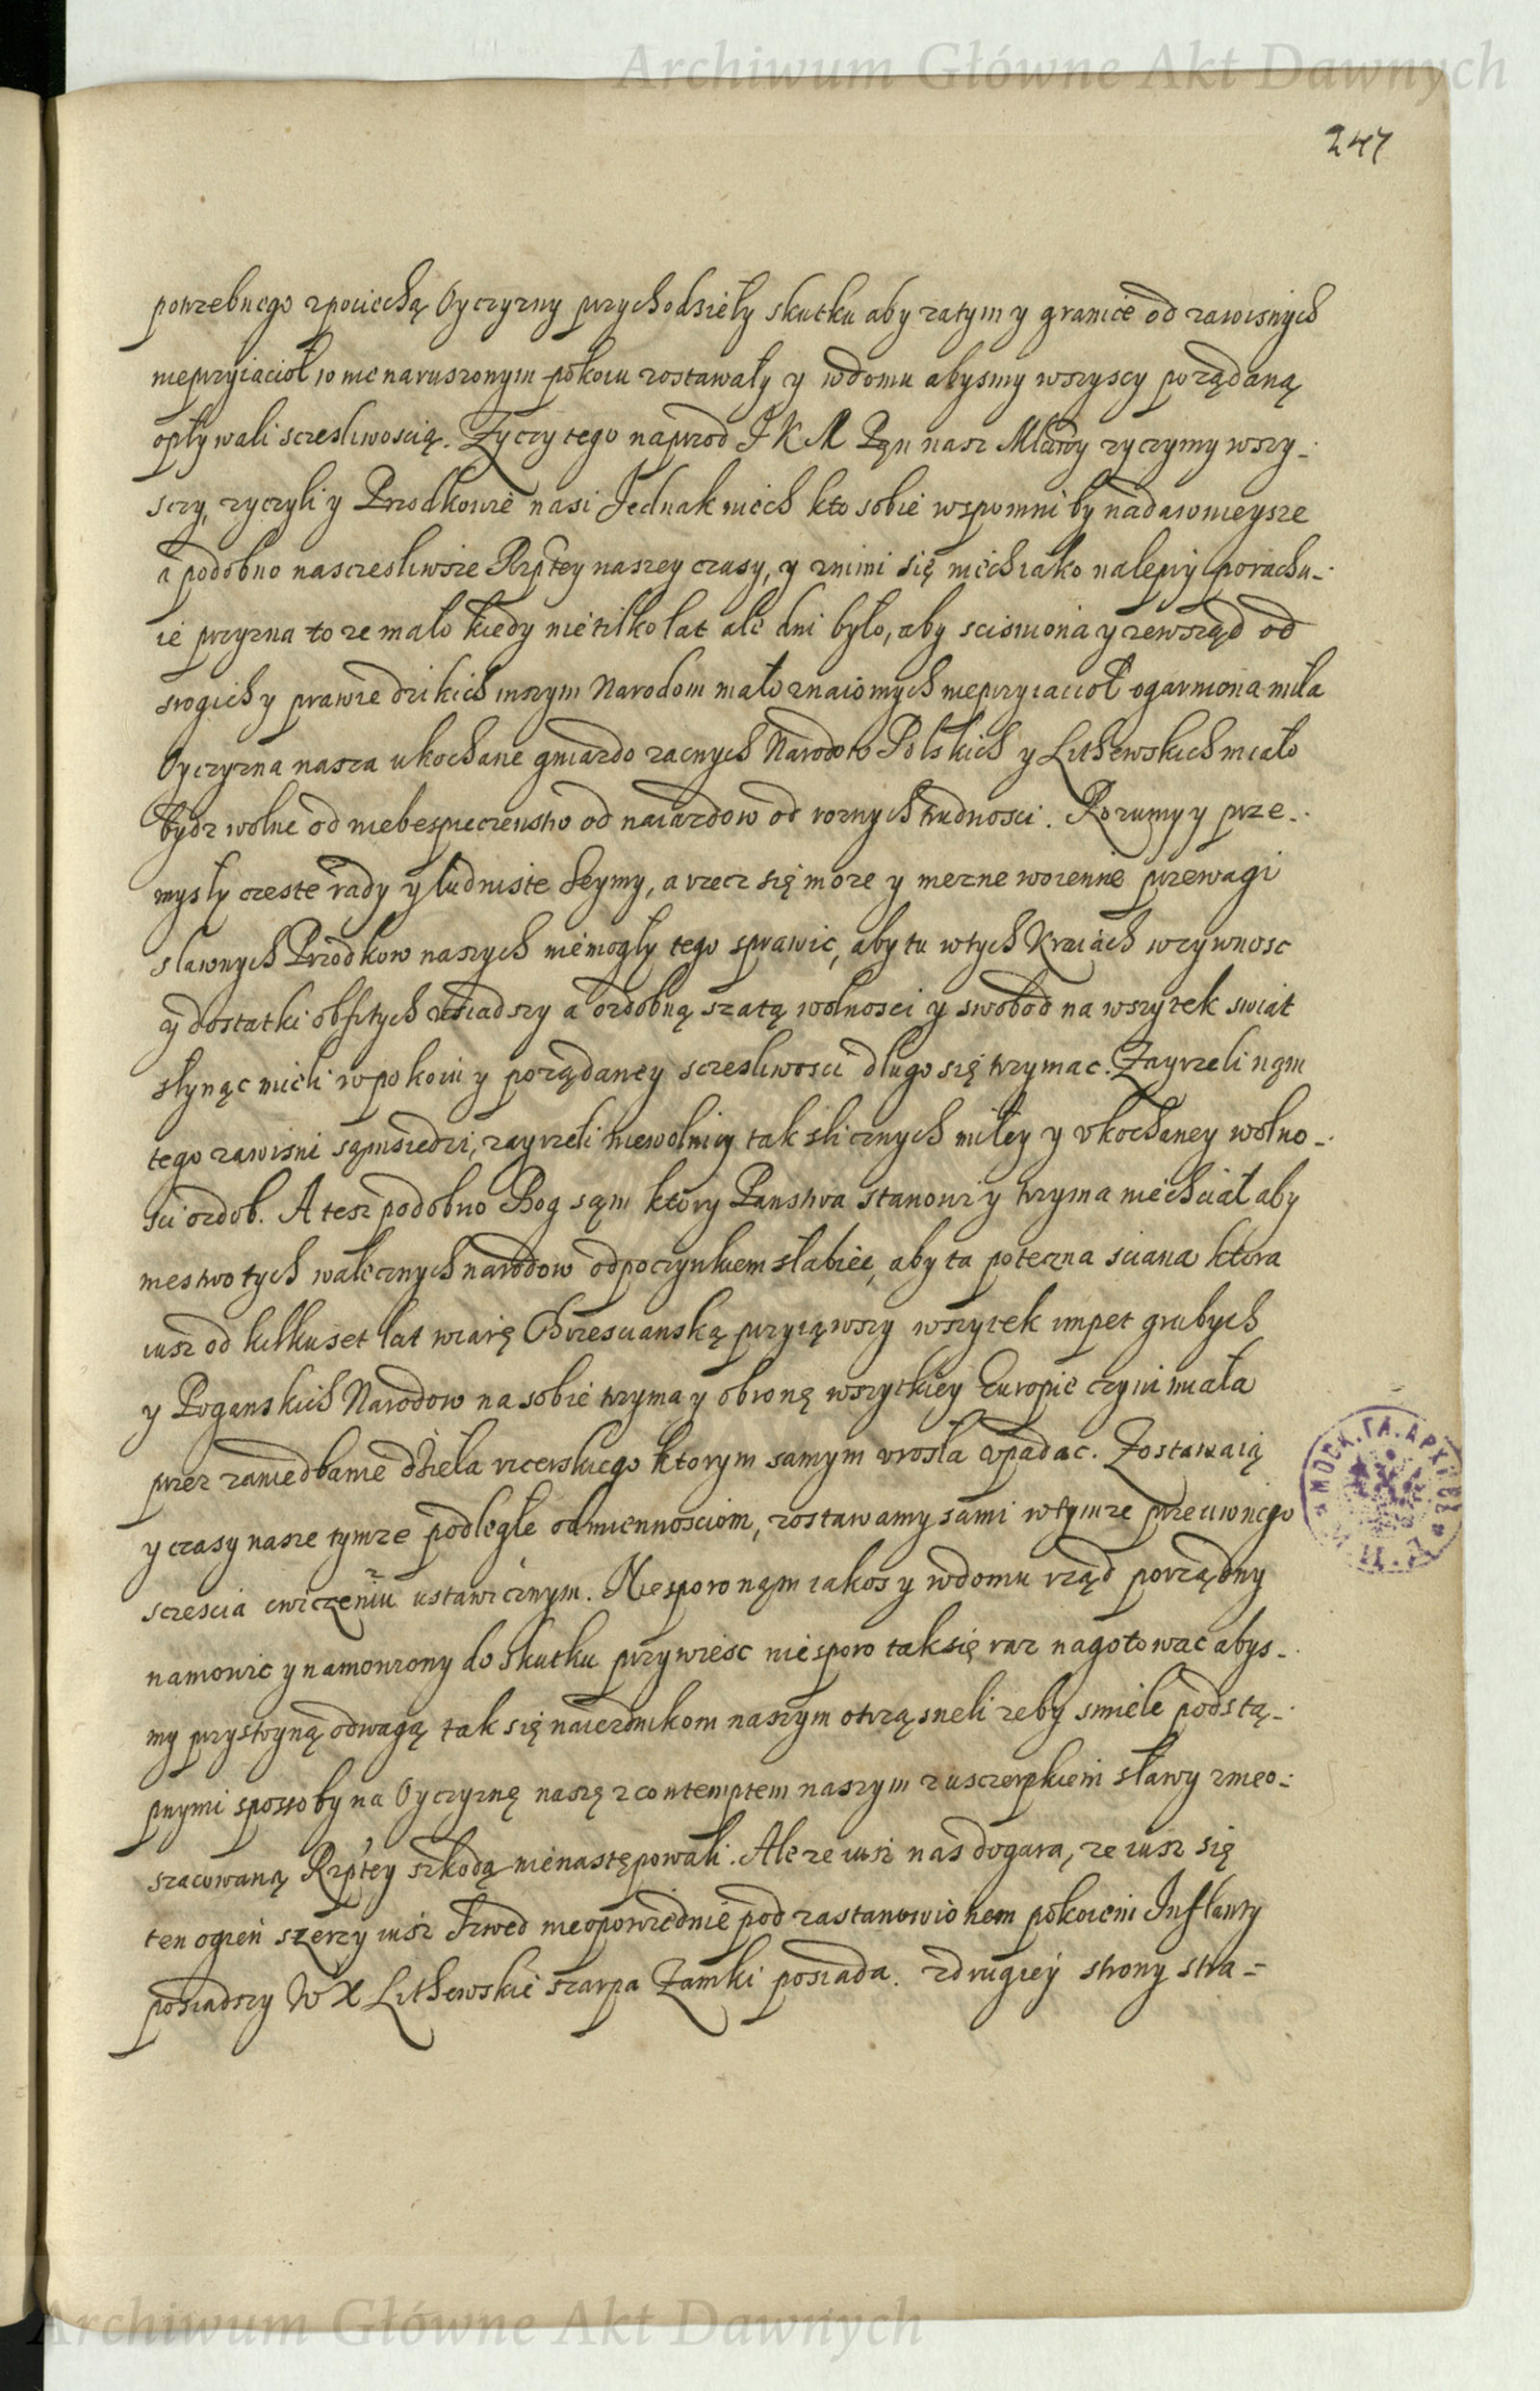 Archiwum Główne Akt Dawnych
247
potrzebnego z pociechą Oyczyzny przychodzieły skutku aby zatym y granice od zawisnych
nieprzyiacioł w nienaruszonym pokoiu zostawały y w domu abysmy wszyscy porządaną
opływali sczesliwoscią. Zyczy tego naprzod J K M Pąn nasz Mławy zyczymy wszy-
scy, zyczyli y Przodkowie nasi Jednak niech kto sobie wspomni by nadawnieysze
a podobno nasczesliwsze Rzptey naszey czasy, y z nimi się niech iako nalepiy porachu-
ie przyzna to ze mało kiedy nie tilko lat ale dni było, aby scisniona y zewsząd od
srogich y prawie dzikich inszym Narodom mało znaiomych nieprzyiacioł ogarniona miła
Oyczyzna nasza ukochane gniazdo zacnych Narodow Polskich y Lithewskich miało
bydz wolne od niebespieczenstw od naiazdow od roznych trudnosci. Rozumy y prze-
mysły czeste rady y ludniste Seymy, a rzecz się moze y mezne woienne przewagi
slawnych Przodkow naszych niemogły tego sprawic, aby tu w tych Kraiach w zywnosc
y dostatki obfitych usiadszy a ozdobną szatą wolnosci y swobod na wszytek swiat
słynąc mieli w pokoiu y porządaney sczesliwosci długo się trzymac. Zayrzeli nąm
tego zawisni sąmsiedzi, zayrzeli niewolnicy tak slicznych miłey y ukochaney wolno-
sci ozdob. A tesz podobno Bog sąm ktory Panstwa stanowi y trzyma niechciał aby
mestwo tych walecznych narodow odpoczynkiem słabiec, aby ta potezna sciana ktora
iusz od kilkuset lat wiarę Chrzescianską przyiąwszy wszytek impet grubych
y Poganskich Narodow na sobie trzyma y obronę wszytkiey Europie czyni miała
przez zaniedbanie dzieła ricerskiego ktorym samym urosła upadac. Zostawaią
y czasy nasze tymze podległe odmiennosciom, zostawamy sami w tymze przeciwnego
sczescia cwiczeniu ustawicznym. Niesporo nąm iakos y w domu rząd porządny
namowic y namowiony do skutku przywiesc niesporo tak się raz nagotowac abys-
my przystoyną odwagą tak się naiezdnikom naszym otrząsneli zeby smiele podstą-
pnymi sposoby na Oyczyznę naszę z contemptem naszym z usczerpkiem sławy z nieo-
szacowaną Rzptey szkodą nienastępowali. Ale ze iusz nas dogara, ze iusz się
ten ogień szerzy iusz Szwed nieopowiednie pod zastanowionem pokoiem Inflanty
posiadszy W X Lithewskie szarpa Zamki posiada. z drugiey strony stra-
МОСК. ГЛ. АРХ
Archiwum Główne Akt Dawnych